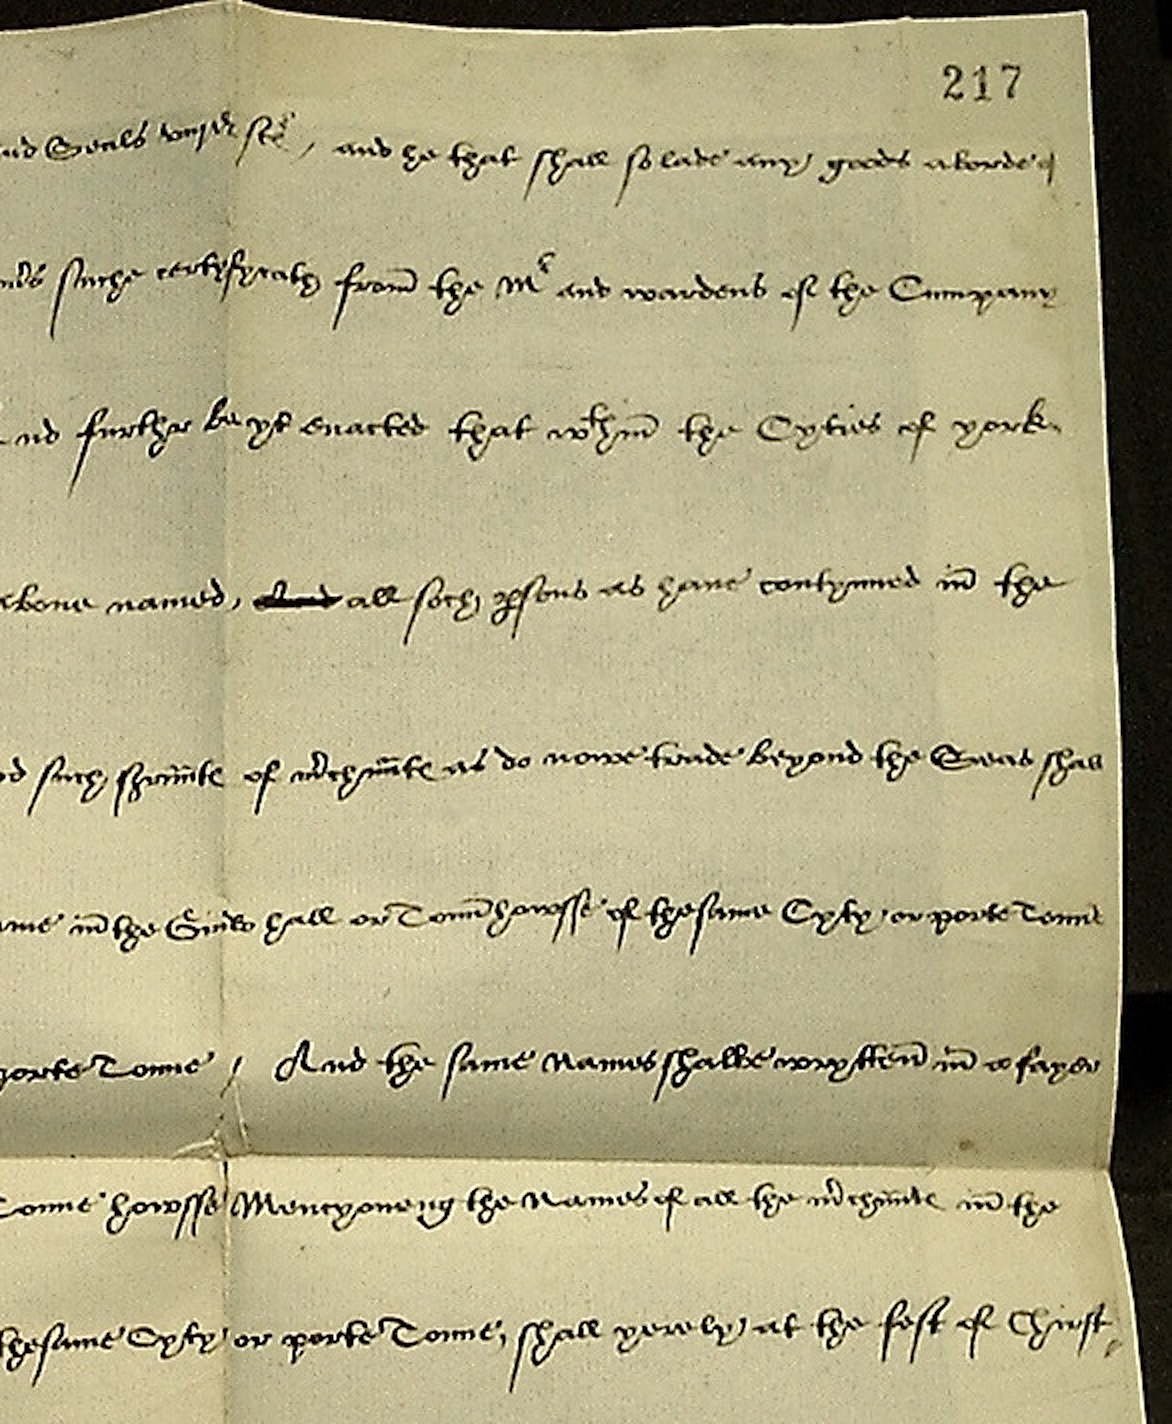 217
and Seals , and he that shall so lade any goods aborde
suche certyfycath from the Mr and wardens of the Cumpany
And further be yt enacted that wthin the Cyties of york
abone named, And all soch psons as have contynued in the
and such of mrchaunts as do nowe trade beyond the Seas shall
same in the Guild hall or Toun howsse of the same Cyty or porte Toune
porte Toune / And the same Names shalbe wrytten in a fayer
Toune howsse Mencyoneng the Names of all the mrchaunts in the
the same Cyty or porte Toune, shall yerely at the fest of Christ